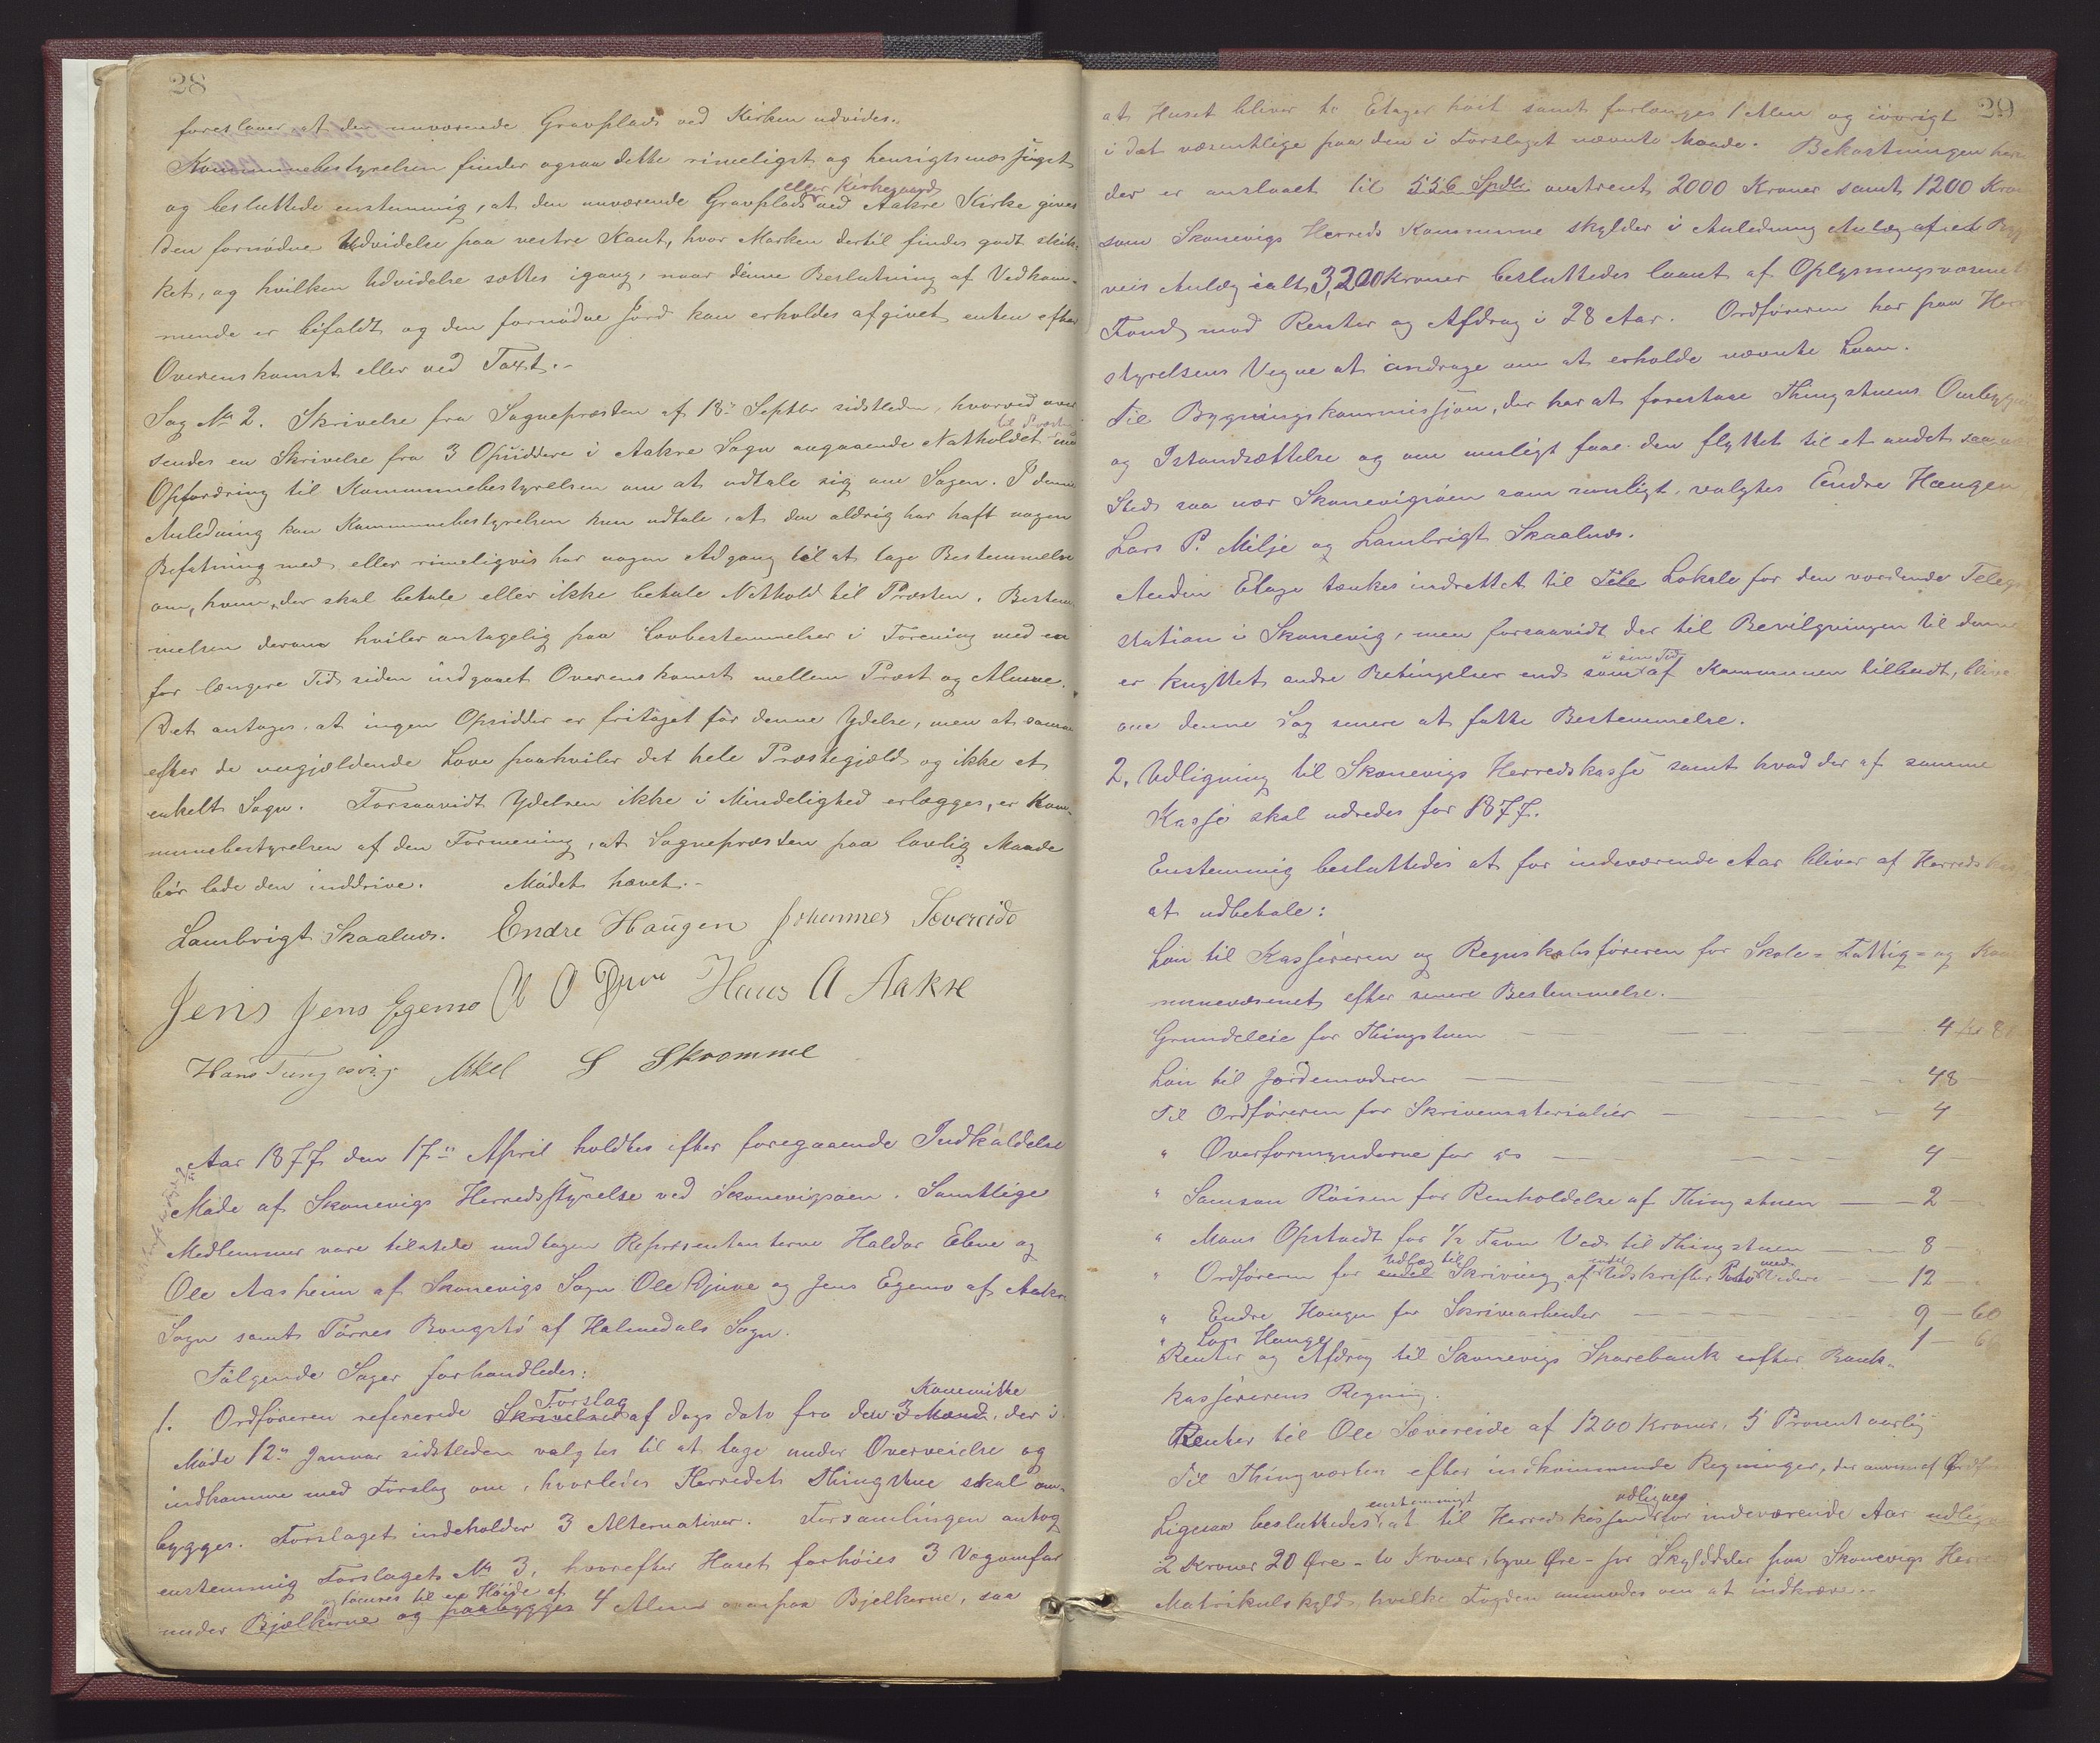 28
foreslaaer at den nuværende Gravplads ved Kirken udvides.
Kommunebestyrelsen finder ogsaa dette rimeligst og hensigtsmæssigst
eller Kirkegaard
og besluttede enstemmig, at den nuværende Gravplads ved Aakre Kirke gives
den fornødne Udvidelse paa vestre Kant, hvor Marken dertil findes godt skik-
ket, og hvilken Udvidelse sættes igang, naar denne Beslutning af Vedkom-
mende er bifaldt og den fornødne Jord kan erholdes afgivet enten efter
Overenskomst eller ved Taxt.-
Sag No 2. Skrivelse fra Sognepræsten af 18de Septbr sidstleden, hvorved over-
til Præsten
sendes en Skrivelse fra 3 Opsiddere i Aakre Sogn angaaende Natholdet med
Opfordring til Kommunebestyrelsen om at udtale sig om Sagen. I denne
Anledning kan Kommunebestyrelsen kun udtale, at den aldrig har haft nogen
Befatning med, eller rimeligvis har nogen Adgang til at tage Bestemmelse
om, hvem, der skal betale eller ikke betale Nathold til Præsten. Bestem-
melsen derom hviler antagelig paa Lovbestemmelser i Forening med en
for længere Tid siden indgaaet Overenskomst mellem Præst og Almue.
Det antages, at ingen Opsidder er fritaget for denne Ydelse, men at samme
efter de nugjældende Love paahviler det hele Præstegjæld og ikke et
enkelt Sogn. Forsaavidt Ydelsen ikke i Mindelighed erlægges, er Kom-
munebestyrelsen af den Formening, at Sognepræsten paa lovlig Maade
bør lade den inddrive. Mødet hævet.-
Lambrigt Skaalnes. Endre Haugen Johannes Sævereide
Jens Jens Egemo O O Djuve Hans A Aakre
Hans Tungesvig Mkel S Skromme
Aar 1877 den 17de April holdtes efter foregaaende Indkaldelse
Møde af Skonevigs Herredsstyrelse ved Skonevigsøen. Samtlige
Medlemmer vare tilstede undtagen Repræsentanterne Haldor Ebne og
Ole Aasheim af Skonevigs Sogn Ole Djuve og Jens Egemo af Aakre
Sogn samt Tørres Bougstø af Holmedals Sogn.
Følgende Sager forhandledes:
Forslag Kommitte
1. Ordføreren refererede Skrivelse af Dags Dato fra den 3 Mænd, der i
Møde 12te Januar sidstleden valgtes til at tage under Overveielse og
indkomme med Forslag om, hvorledes Herredets Thingstue skal om-
bygges. Forslaget indeholder 3 Alternativer. Forsamlingen antog
enstemmig Forslagets No 3, hvorefter Huset forhøies 3 Vognmfar
og tømres til en Høide af
under Bjælkerne og paabygges 4 Alen ovenpaa Bjelkerne, saa
29
at Huset bliver to Etager høit samt forlænges 1 Alen og iøvrigt
i det væsentlige paa den i Forslaget nævnte Maade. Bekostningen her
der er anslaaet til 556 Spdlr omtrent 2000 Kroner samt 1200 Kroner
som Skonevigs Herreds Kommune skylder i Anledning Anlæg af et Byg
veis Anlæg ialt 3,200 Kroner besluttedes laant af Oplysningsvæsenets
Fond mod Renter og Afdrag i 28 Aar. Ordføreren har paa Herreds
styrelsens Vegne at andrage om at erholde nævnte Laan.
Til Bygningskommission, der har at forestaae Thingstuens Ombygning
og Istandsættelse og om muligt faae den flyttet til et andet
Sted saa nær Skonevigsøen som muligt, valgtes Endre Haugen
Lars P. Milje og Lambrigt Skaalnes.
Anden Etage tænkes indrettet til Tele Lokale for den vordende Telegraf
station i Skonevig, men forsaavidt der til Bevilgningen til denne
i sin Tid
er knyttet andre Betingelser end som af Kommunen tilbudt, bliver
om denne Sag senere at fatte Bestemmelse.
2. Udligning til Skonevigs Herredskasse samt hvad der af samme
Kasse skal udredes for 1877.
Enstemmig besluttedes at for indeværende Aar bliver af Herredskassen
at udbetale:
Løn til Kassereren og Regnskabsføreren for Skole- Fattig- og Kom
munevæsenet efter senere Bestemmelse.
Grundeleie for Thingstuen 4 Kr 8
Løn til Jordemoderen 48
Til Ordføreren for Skrivematerialier 4
" Overformynderne for ds 4
" Samson Røisen for Renholdelse af Thingstuen 2
" Mons Opstvedt for 1/2 Favn Ved til Thingstuen 8
Udlæg til endel med
" Ordføreren for endel Skriving af Udskrifter Porto Videre 12
" Endre Haugen for Skrivearbeider 9 60
" Lars Hauge 1 6
Renter og Afdrag til Skonevigs Sparebank efter Bank-
kassererens Regning.
Renter til Ole Sævereide af 1200 Kroner, 5 Procent aarlig
Til Thingværten efter indkommende Regninger, der anvises af Ordføreren
enstemmigt udlignes
Ligesaa besluttedes, at til Herredskassen for indeværende Aar udlignes
2 Kroner 20 Øre - to Kroner, tyve Øre - pr Skylddaler paa Skonevigs Herreds
Matrikulskyld, hvilke Fogden anmodes om at indkræve.